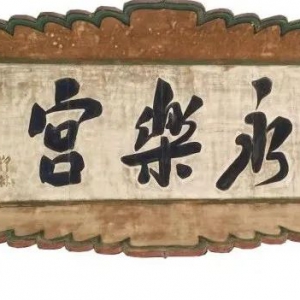 永樂宮